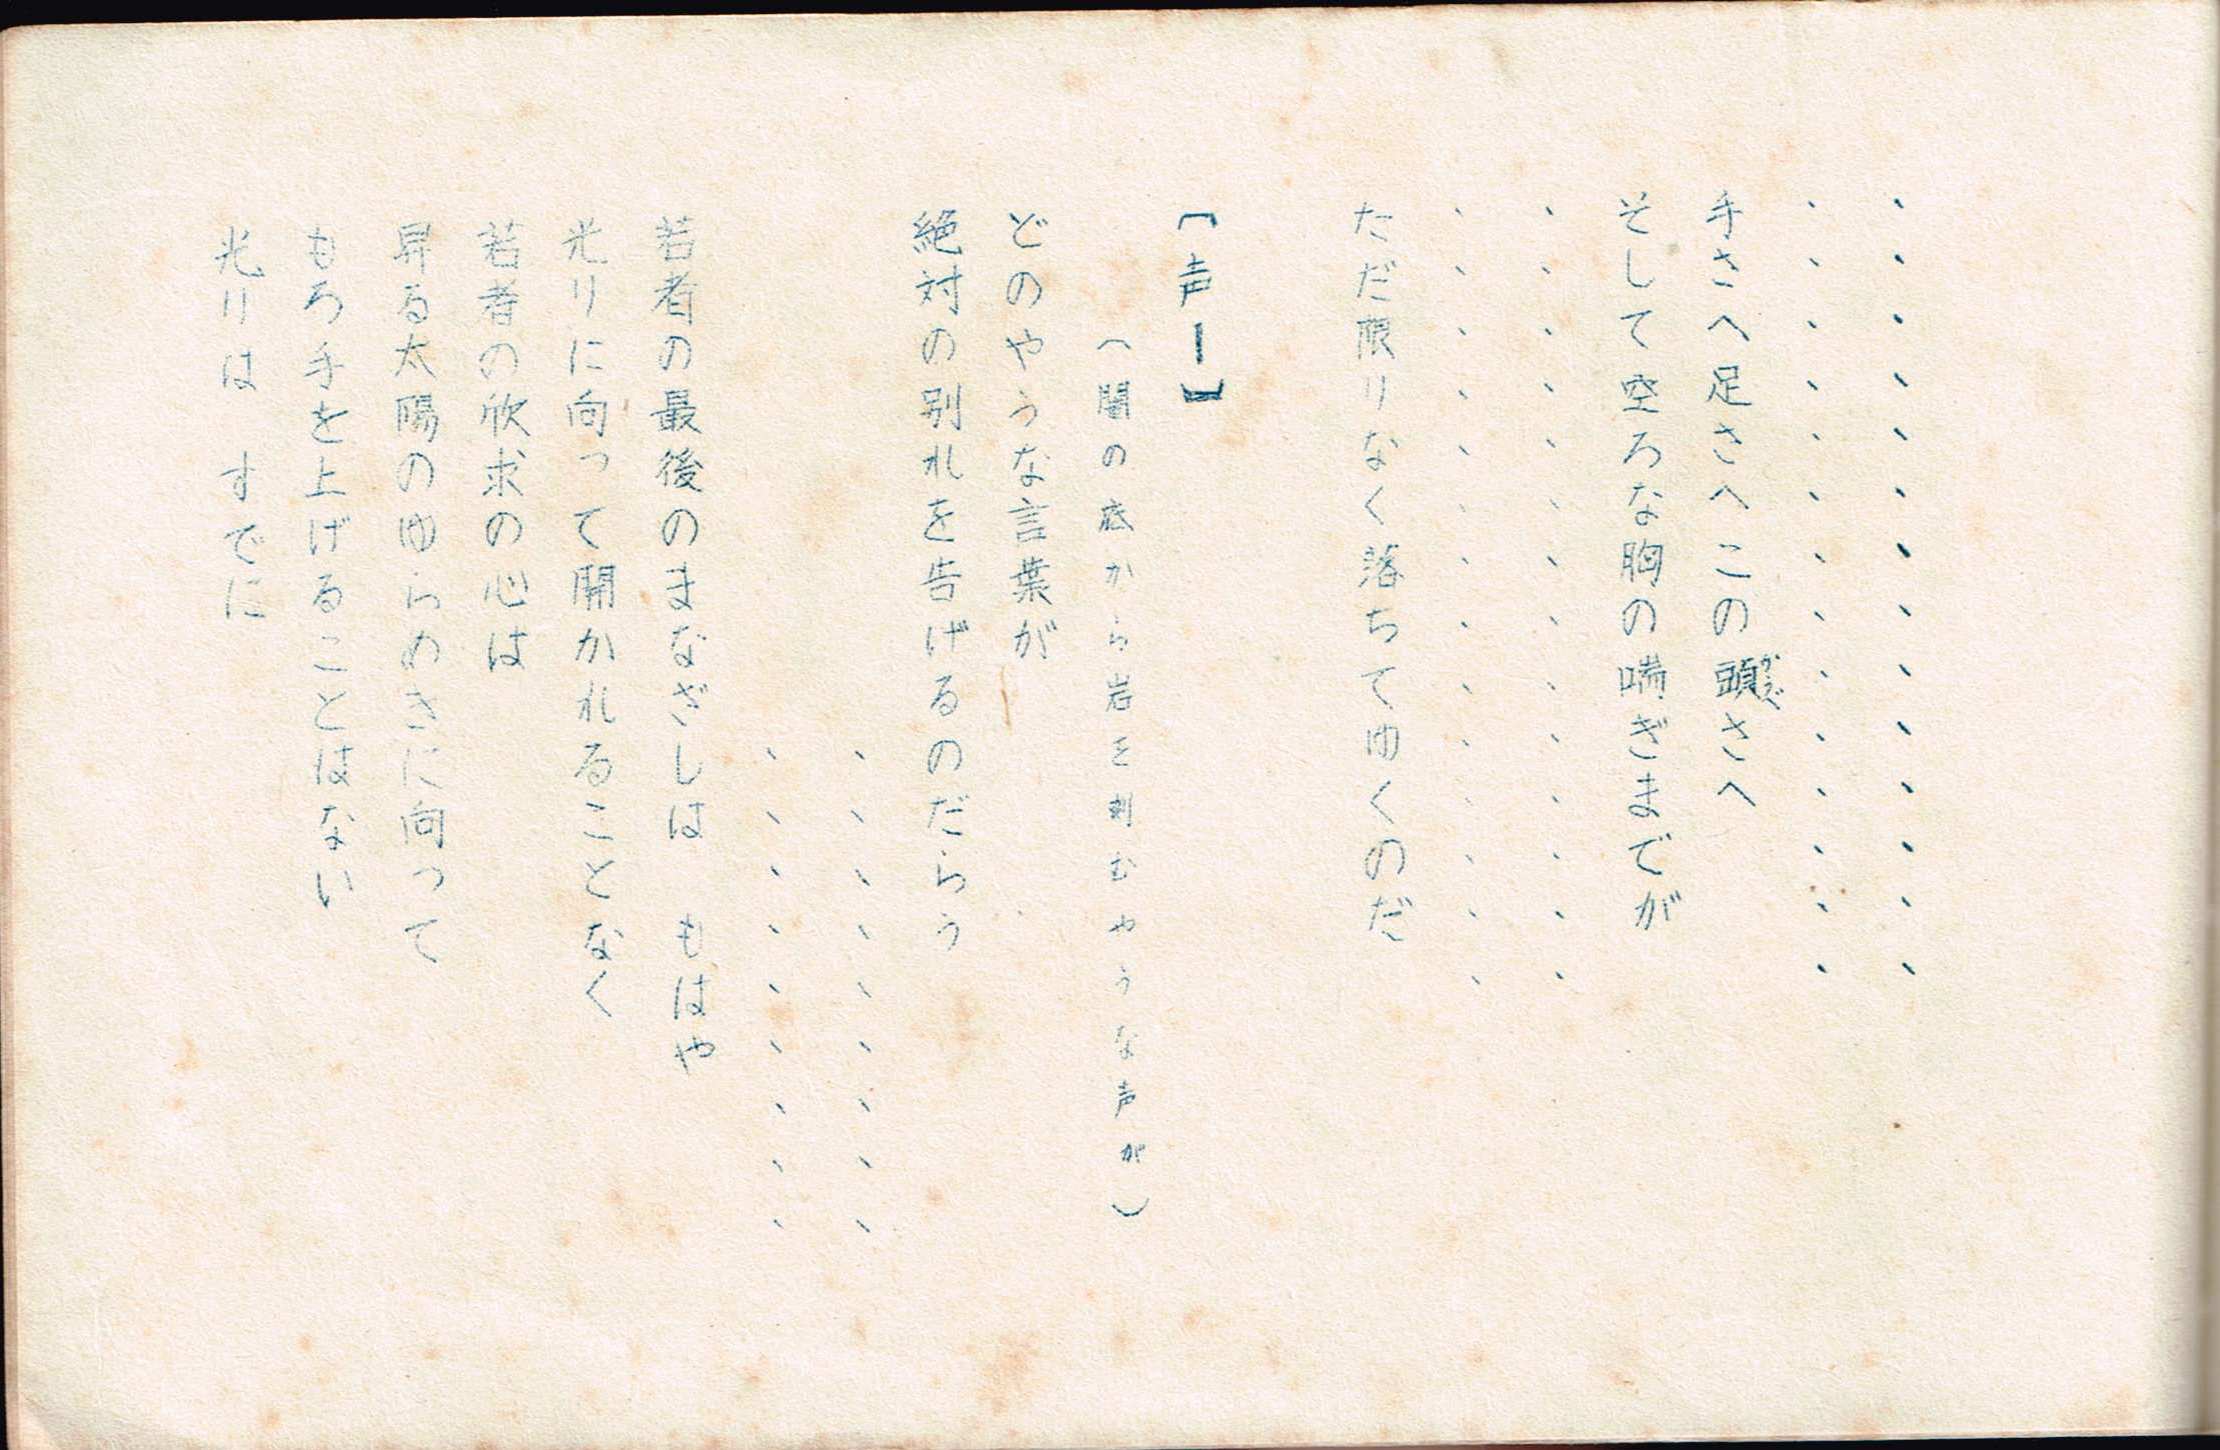 ・・・・・・・・・・・・・・
・・・・・・・・・・・・・・
手さへ足さへこの頭さへ
そして空ろな胸の喘ぎまでが
・・・・・・・・・・・・・・
・・・・・・・・・・・・・・
ただ限りなく落ちてゆくのだ
〔声ー〕
（闇の底から岩を刺むやうな声が）
どのやうな言葉が
絶対の別れを告げるのだらう
・・・・・・・・・
・・・・・・・・・
若者の最後のまなざしは　もはや
光りに向って開かれることなく
若者の欣求の心は
昇る太陽のゆらめきに向って
もろ手を上げることはない
光りは　すでに